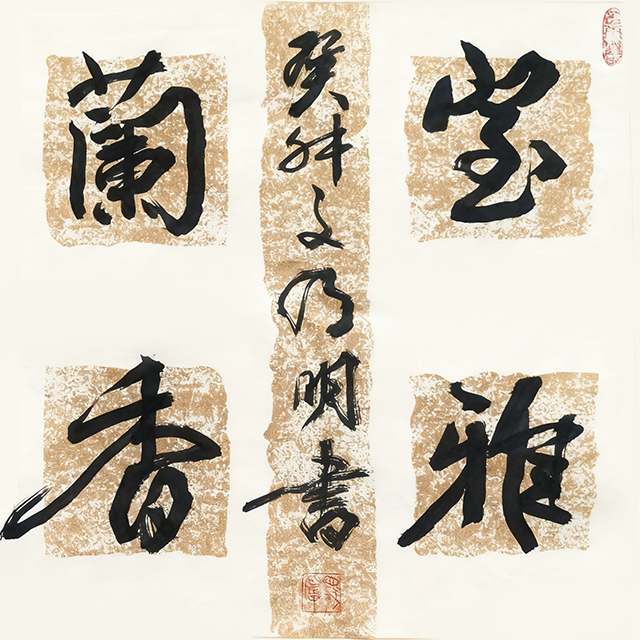 室雅
蘭香
癸卯文乃明書